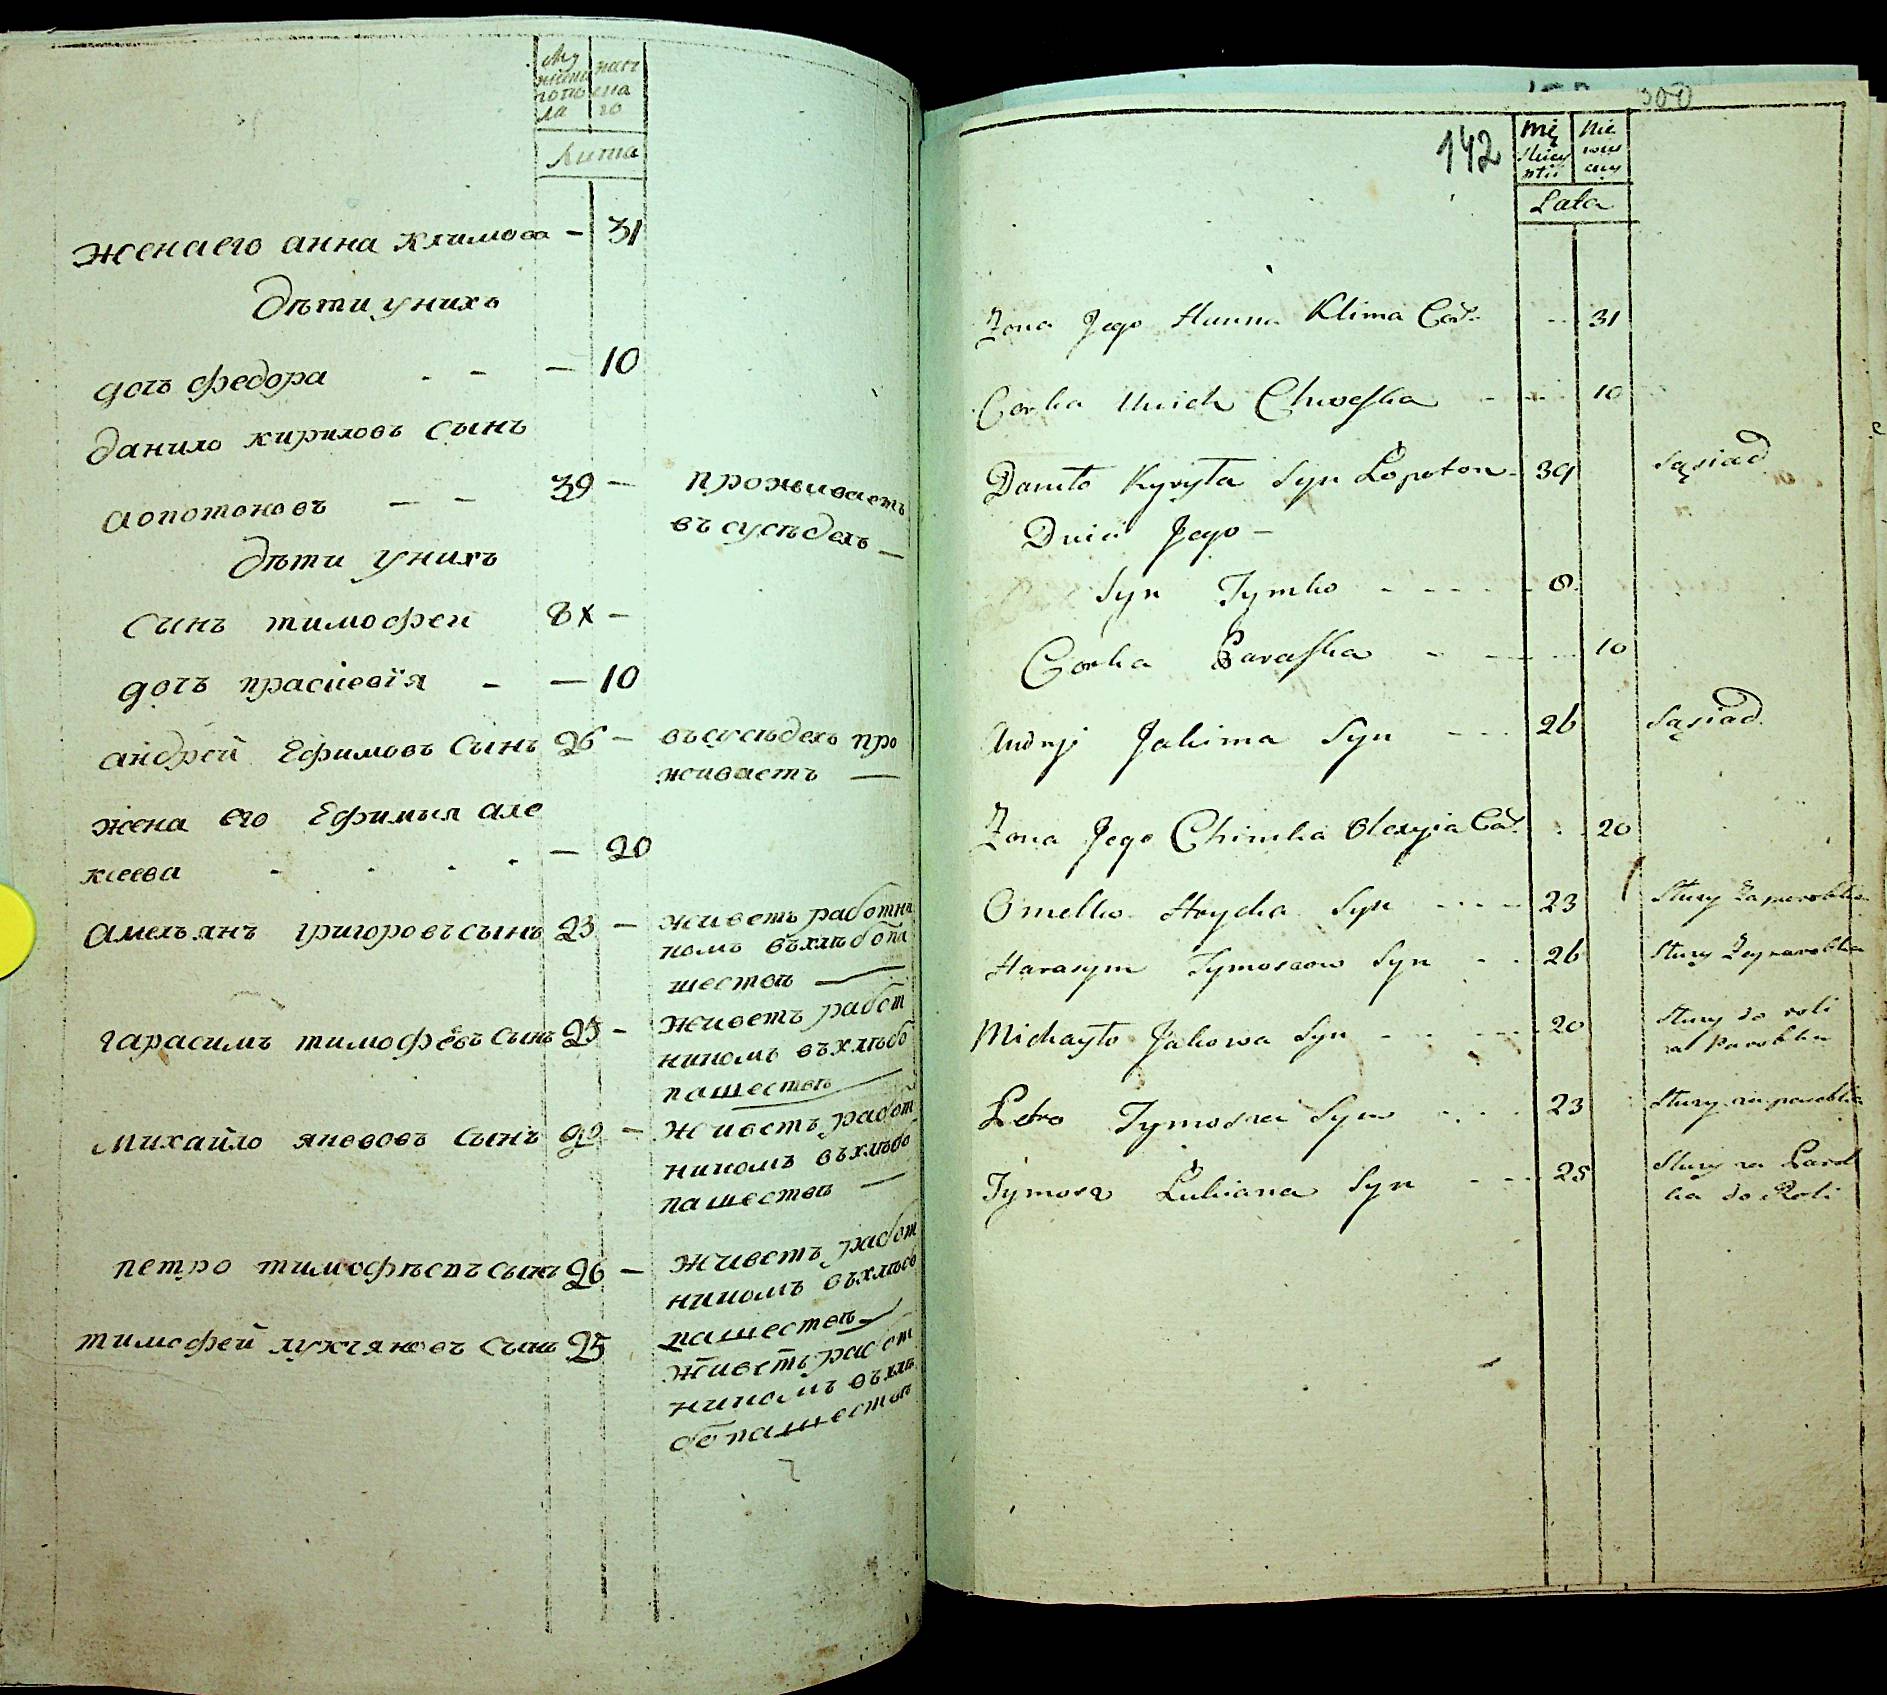 Му
жеска
гопо
ла
женс
ка
го
Лѣта
женаего анна климова — 31
дѣти унихъ
дочь федора — 10
данило кириловъ сынъ
лопотоновъ 39 — проживаетъ
въ сусѣдехъ —
дѣти унихъ
сынъ тимофеи 8 х —
дочъ прасцевія — 10
андрей Ефимовъ сынъ 26 — въсусѣдехъ про
живаетъ —
жена его Ефимия але
ксеева — 20
Амельянъ григоровъ сынъ 23 — живетъ работни
комъ въхлѣбопа
шествѣ —
гарасимъ тимофѣевъ сынъ 25 — живетъ работ
никомъ въхлѣбо
пашествѣ
михайло яковovъ сынъ 20 — живетъ работ
никомъ въхлѣбо
пашествѣ —
петро тимофѣевъ сынъ 26 — живетъ работ
никомъ въхлѣбо
пашествѣ
тимофей лукияновъ сынъ 25 живетъ работ
никомъ въхлѣ
бопашествѣ
300
142
Lata
Żona Jego Hanna Klima Cór. 31
Corka Unich Chweska 10
Daniło Kyryła Syn Łopoton 39 Sąsiad
Dzieci Jego —
Syn Tymko 8
Corka Paraska 10
Andrzej Jakima Syn 26 Sąsiad
Żona Jego Chimka Olexyia Cór. 20
Omelko Hrycka Syn 23 Służy za parobka
Harasym Tymoszow Syn 26 Służy za parobka
Michayło Jakowa Syn 20 Służy do roli
za Parobka
Petro Tymosza Syn 23 Służy za parobka
Tymosz Łukiana Syn 25 Służy za Parob
ka do Roli